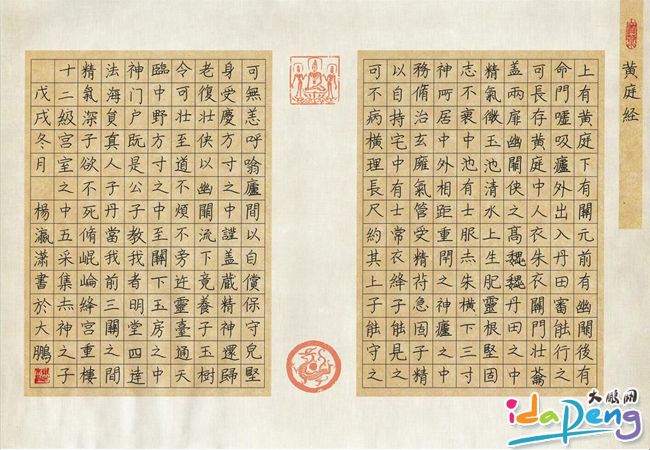 黄庭经
上有黄庭下有關元前有幽闕後有
命門嘘吸廬外出入丹田審能行之
可長存黄庭中人衣朱衣關門壮蘥
盖兩扉幽闕侠之髙魏魏丹田之中
精氣微玉池清水上生肥靈根堅固
志不衰中池有士服赤朱横下三寸
神所居中外相距重閇之神廬之中
務脩治玄廱氣管受精苻急固子精
以自持宅中有士常衣绛子能見之
可不病横理長尺約其上子能守之
可無恙呼噏廬間以自償保守皃堅
身受慶方寸之中謹盖藏精神還歸
老復壮侠以幽闕流下竟養子玉樹
令可壮至道不煩不旁迕靈臺通天
臨中野方寸之中至關下玉房之中
神门户既是公子教我者明堂四達
法海負真人子丹當我前三關之間
精氣深子欲不死脩崐崘绛宫重樓
十二級宫室之中五采集赤神之子
戊戌冬月 楊瀛潇書於大鵬
大鹏网
idapeng